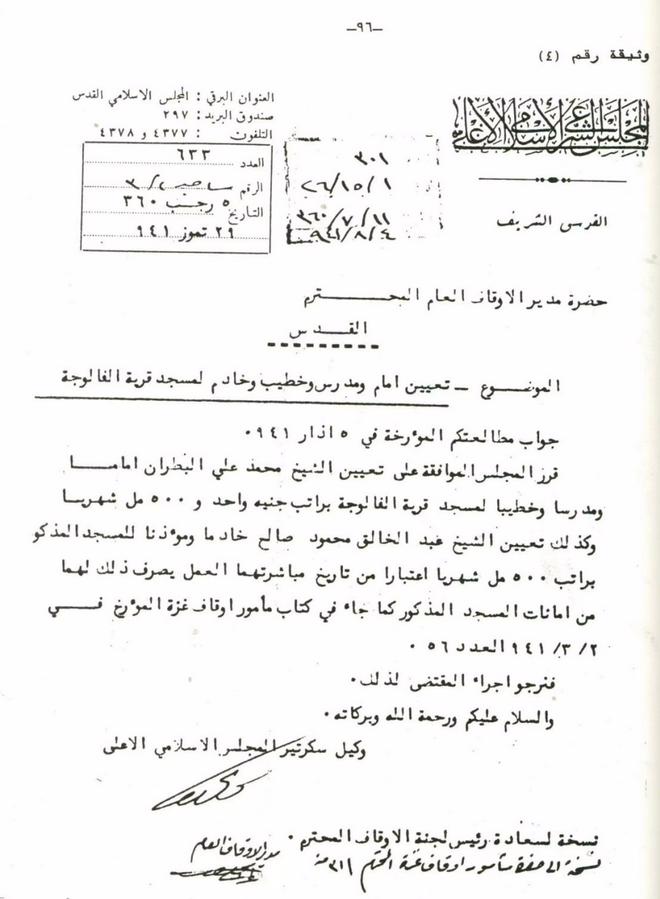 –٩٦–
وثيقة رقم (٤)
المجلس الشرعي الإسلامي الأعلى
العنوان البرقي : المجلس الاسلامي القدس
صندوق البريد : ٢٩٧
التلفون : ٤٣٧٧ و ٤٣٧٨
العدد ٦٣٣
الرقم
التاريخ ٥ رجب ٣٦٠
٢٩ تموز ٩٤١
٣٠١
٢٦/١٥/١
٣٦٠/٧/١١
٩٤١/٨/٤
الفرسى الشريف
حضرة مدير الاوقاف العام المحترم
القدس
الموضوع – تعيين امام ومدرس وخطيب وخادم لمسجد قرية الفالوجة
جواب مطالعتكم المؤرخة في ٥ اذار ٩٤١٠
قرر المجلس الموافقة على تعيين الشيخ محمد علي البطران اماما
ومدرسا وخطيبا لمسجد قرية الفالوجة براتب جنيه واحد و ٥٠٠ مل شهريا
وكذلك تعيين الشيخ عبد الخالق محمود صالح خادما ومؤذنا للمسجد المذكو
براتب ٥٠٠ مل شهريا اعتبارا من تاريخ مباشرتهما العمل يصرف ذلك لهما
من امانات المسجد المذكور كما جاء في كتاب مأمور اوقاف غزة المؤرخ في
٢/ ٣/ ٩٤١ العدد ٥٦ ٠
فنرجو اجراء المقتضى لذلك٠
والسلام عليكم ورحمة الله وبركاته٠
وكيل سكرتير المجلس الاسلامي الاعلى
نسخة لسعادة رئيس لجنة الاوقاف المحترم ٠
نسخة الى حضرة مأمور اوقاف غزة المحترم
مدير الاوقاف العام